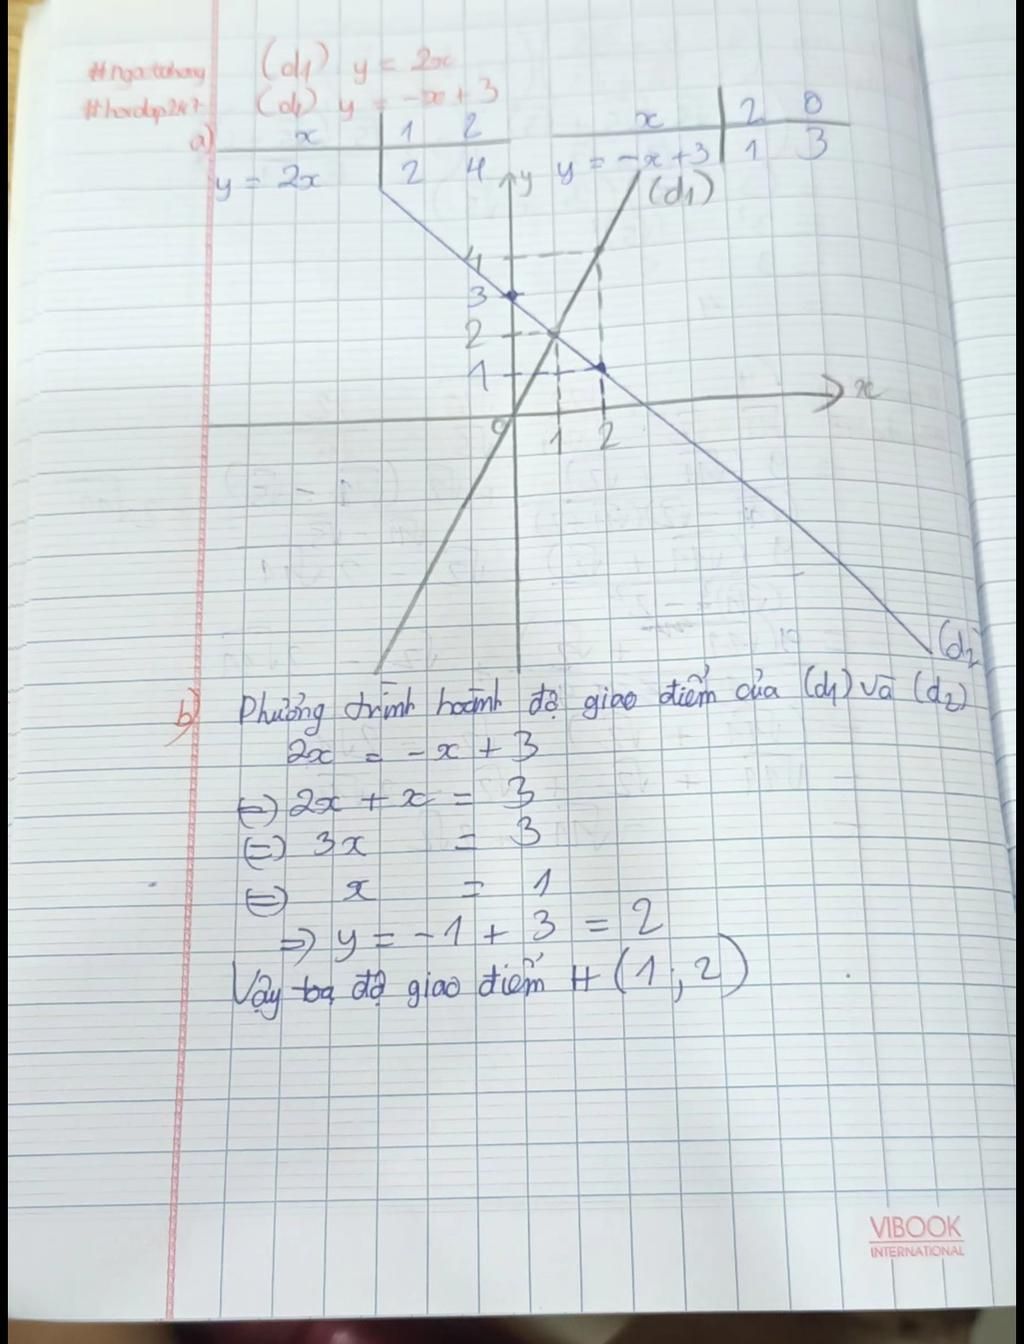 #ngontohong (d1) y = 2x
#hoidap247 (d2) y = -x + 3
a) x 1 2 x 2 0
y = 2x 2 4 y = -x + 3 1 3
y (d1)
4
3
2
1
x
O 1 2
(d2)
b) Phương trình hoành độ giao điểm của (d1) và (d2)
2x = -x + 3
⇔ 2x + x = 3
⇔ 3x = 3
⇔ x = 1
⇒ y = -1 + 3 = 2
Vậy toạ độ giao điểm H (1, 2)
VIBOOK
INTERNATIONAL